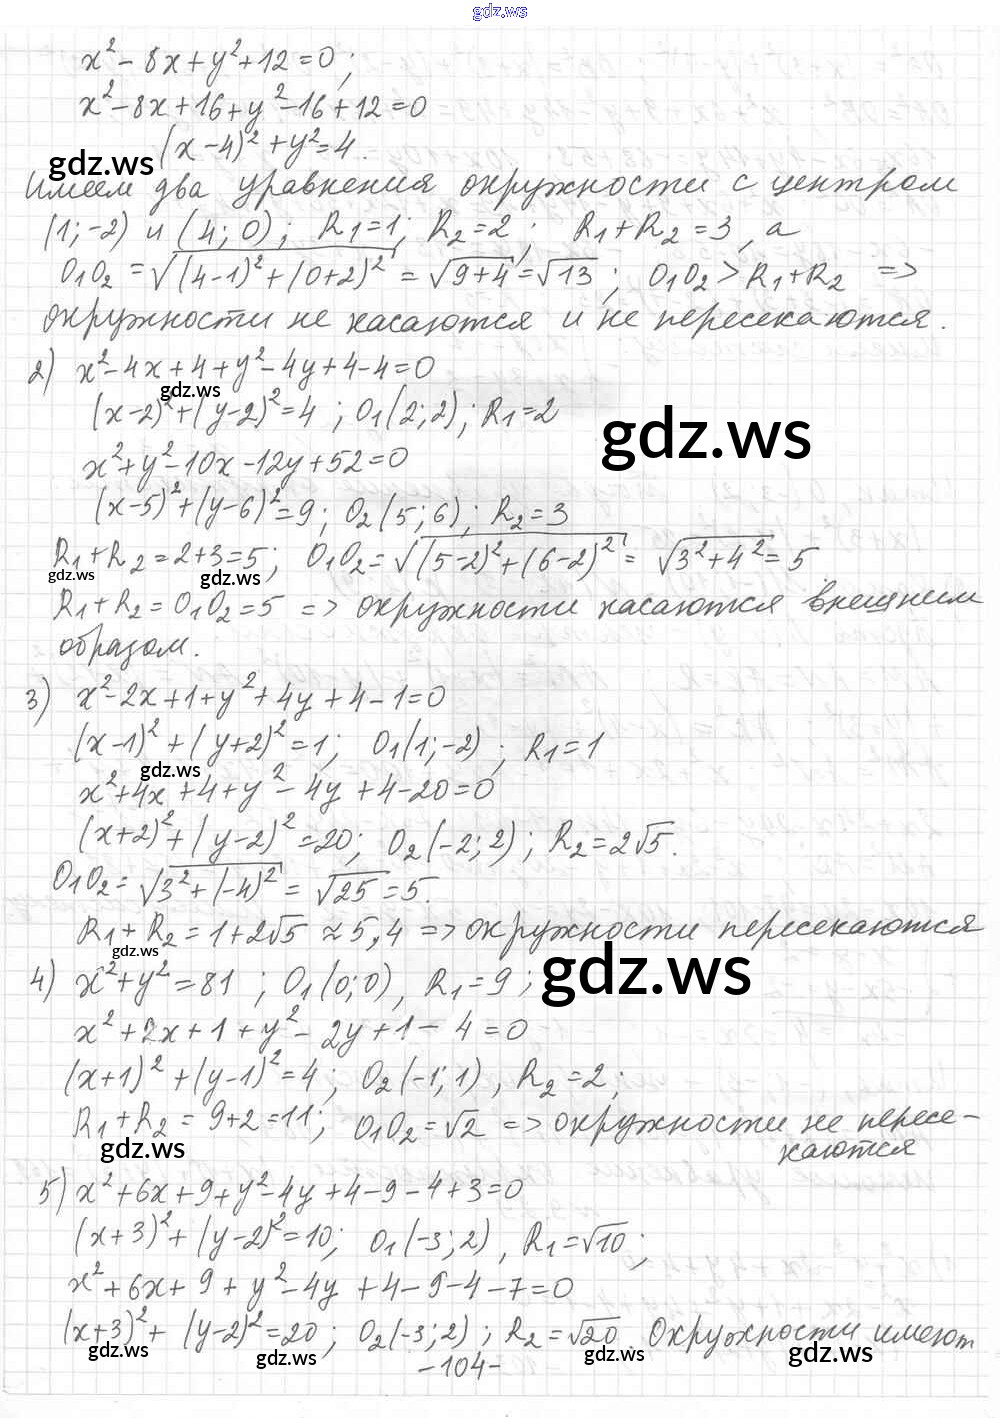 gdz.ws
x² - 8x + y² + 12 = 0;
x² - 8x + 16 + y² - 16 + 12 = 0
(x - 4)² + y² = 4.
gdz.ws
Имеем два уравнения окружности с центром
(1; -2) и (4; 0); R₁ = 1; R₂ = 2; R₁ + R₂ = 3, а
O₁O₂ = √((4-1)² + (0+2)²) = √(9+4) = √13; O₁O₂ > R₁ + R₂ =>
окружности не касаются и не пересекаются.
2) x² - 4x + 4 + y² - 4y + 4 - 4 = 0
gdz.ws
(x-2)² + (y-2)² = 4; O₁(2; 2); R₁ = 2
gdz.ws
x² + y² - 10x - 12y + 52 = 0
(x-5)² + (y-6)² = 9; O₂(5; 6); R₂ = 3
R₁ + R₂ = 2 + 3 = 5; O₁O₂ = √((5-2)² + (6-2)²) = √(3² + 4²) = 5
gdz.ws gdz.ws
R₁ + R₂ = O₁O₂ = 5 => окружности касаются внешним
образом.
3) x² - 2x + 1 + y² + 4y + 4 - 1 = 0
(x-1)² + (y+2)² = 1; O₁(1; -2); R₁ = 1
gdz.ws
x² + 4x + 4 + y² - 4y + 4 - 20 = 0
(x+2)² + (y-2)² = 20; O₂(-2; 2); R₂ = 2√5.
O₁O₂ = √(3² + (-4)²) = √25 = 5.
R₁ + R₂ = 1 + 2√5 ≈ 5,4 => окружности пересекаются
gdz.ws gdz.ws
4) x² + y² = 81; O₁(0; 0), R₁ = 9;
x² + 2x + 1 + y² - 2y + 1 - 4 = 0
(x+1)² + (y-1)² = 4; O₂(-1; 1), R₂ = 2;
R₁ + R₂ = 9 + 2 = 11; O₁O₂ = √2 => окружности не пересе-
каются
gdz.ws
5) x² + 6x + 9 + y² - 4y + 4 - 9 - 4 + 3 = 0
(x+3)² + (y-2)² = 10; O₁(-3; 2), R₁ = √10;
x² + 6x + 9 + y² - 4y + 4 - 9 - 4 - 7 = 0
(x+3)² + (y-2)² = 20; O₂(-3; 2); R₂ = √20. Окружности имеют
gdz.ws gdz.ws gdz.ws gdz.ws
-104-